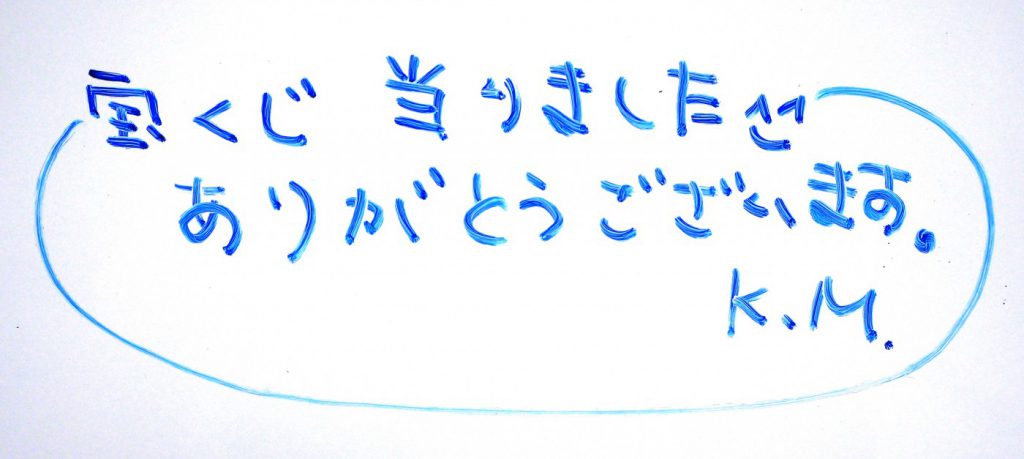 宝くじ 当りました
ありがとうございます。
K.M.